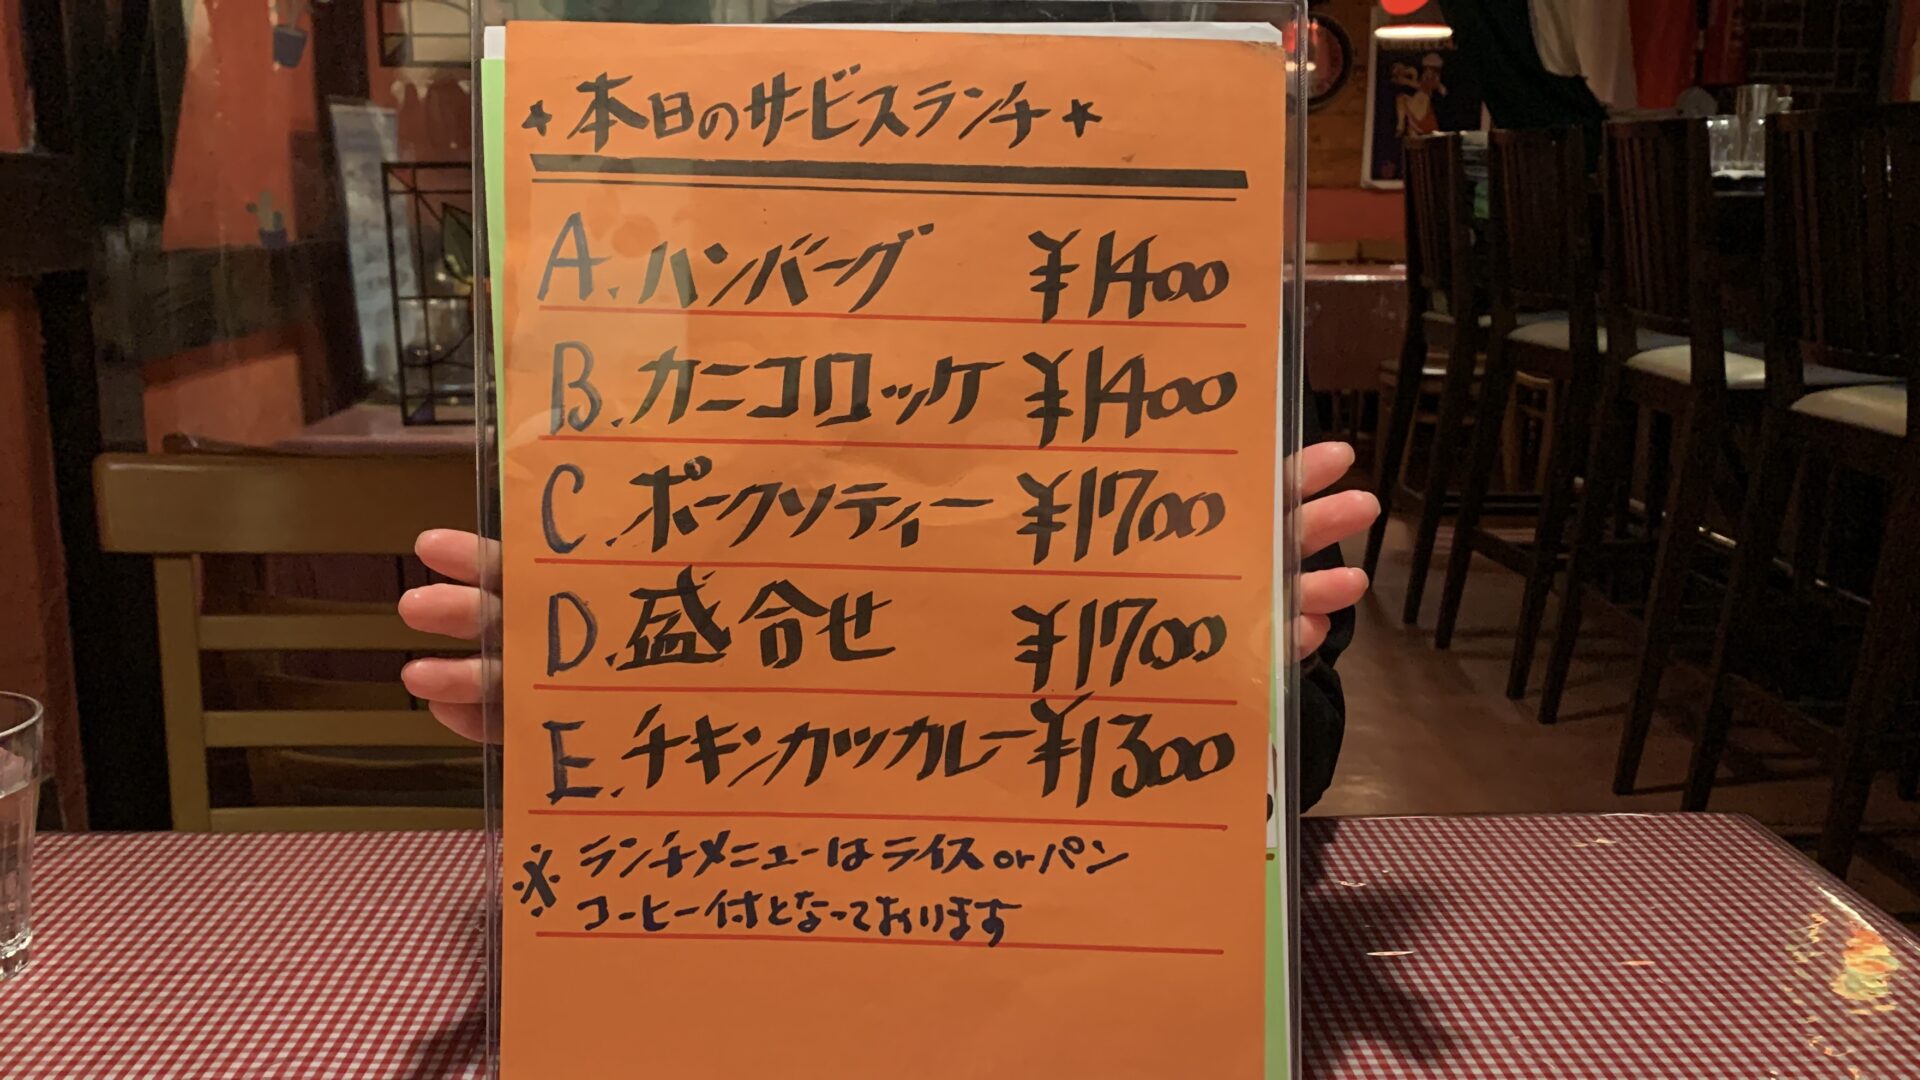 ★本日のサービスランチ★
A.ハンバーグ ¥1400
B.カニコロッケ ¥1400
C.ポークソティー ¥1700
D.盛合せ ¥1700
E.チキンカツカレー ¥1300
※ランチメニューはライスorパン
コーヒー付となっております